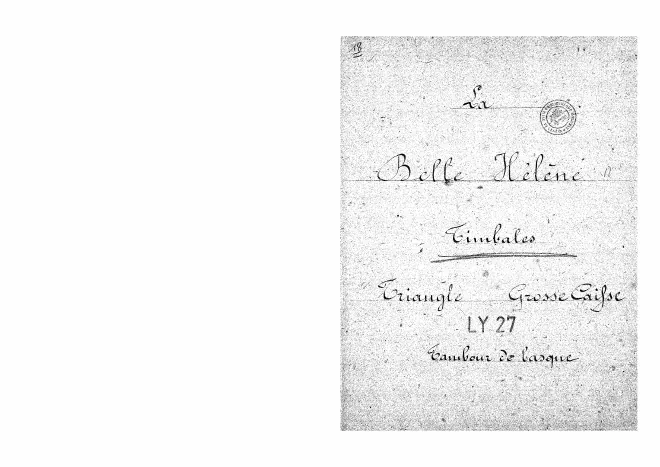 18
La
Belle Hélène
Timbales
Triangle Grosse Caisse
LY 27
Tambour de basque